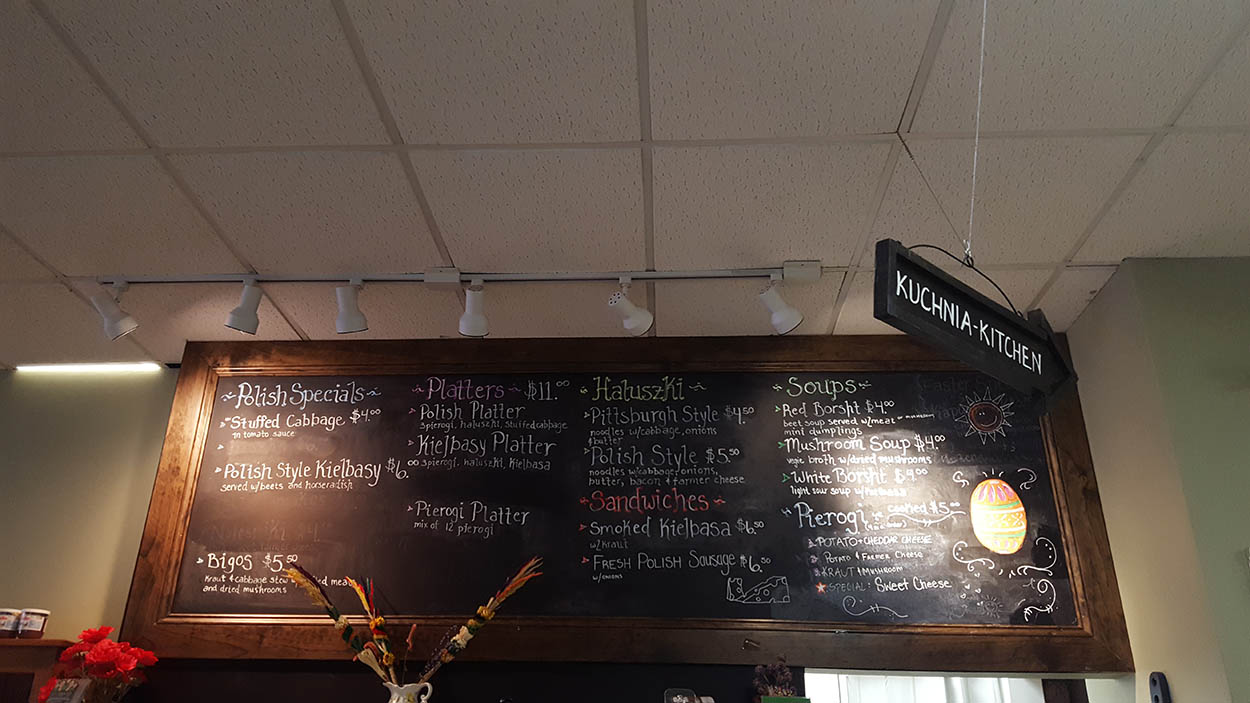 KUCHNIA-KITCHEN
Polish Specials
Stuffed Cabbage $4.00
in tomato sauce
Polish Style Kielbasy $6.00
served w/beets and horseradish
Bigos $5.50
kraut & cabbage stew
and dried mushrooms
Platters $11.00
Polish Platter
3pierogi, haluszki, stuffed cabbage
Kielbasy Platter
3pierogi, haluszki, kielbasa
Pierogi Platter
mix of 12 pierogi
Haluszki
Pittsburgh Style $4.50
noodles w/cabbage, onions
&butter
Polish Style $5.50
noodles w/cabbage, onions,
butter, bacon & farmer cheese
Sandwiches
Smoked Kielbasa $6.50
w/kraut
Fresh Polish Sausage $6.50
w/onions
Soups
Red Borsht $4.00
beet soup served w/meat or mushroom
mini dumplings
Mushroom Soup $4.00
vege broth w/dried mushrooms
White Borsht $4.00
light sour soup w/kielbasa
Pierogi cooked $5.00
Potato & Cheddar Cheese
Potato & Farmer Cheese
Kraut & Mushroom
Special: Sweet Cheese